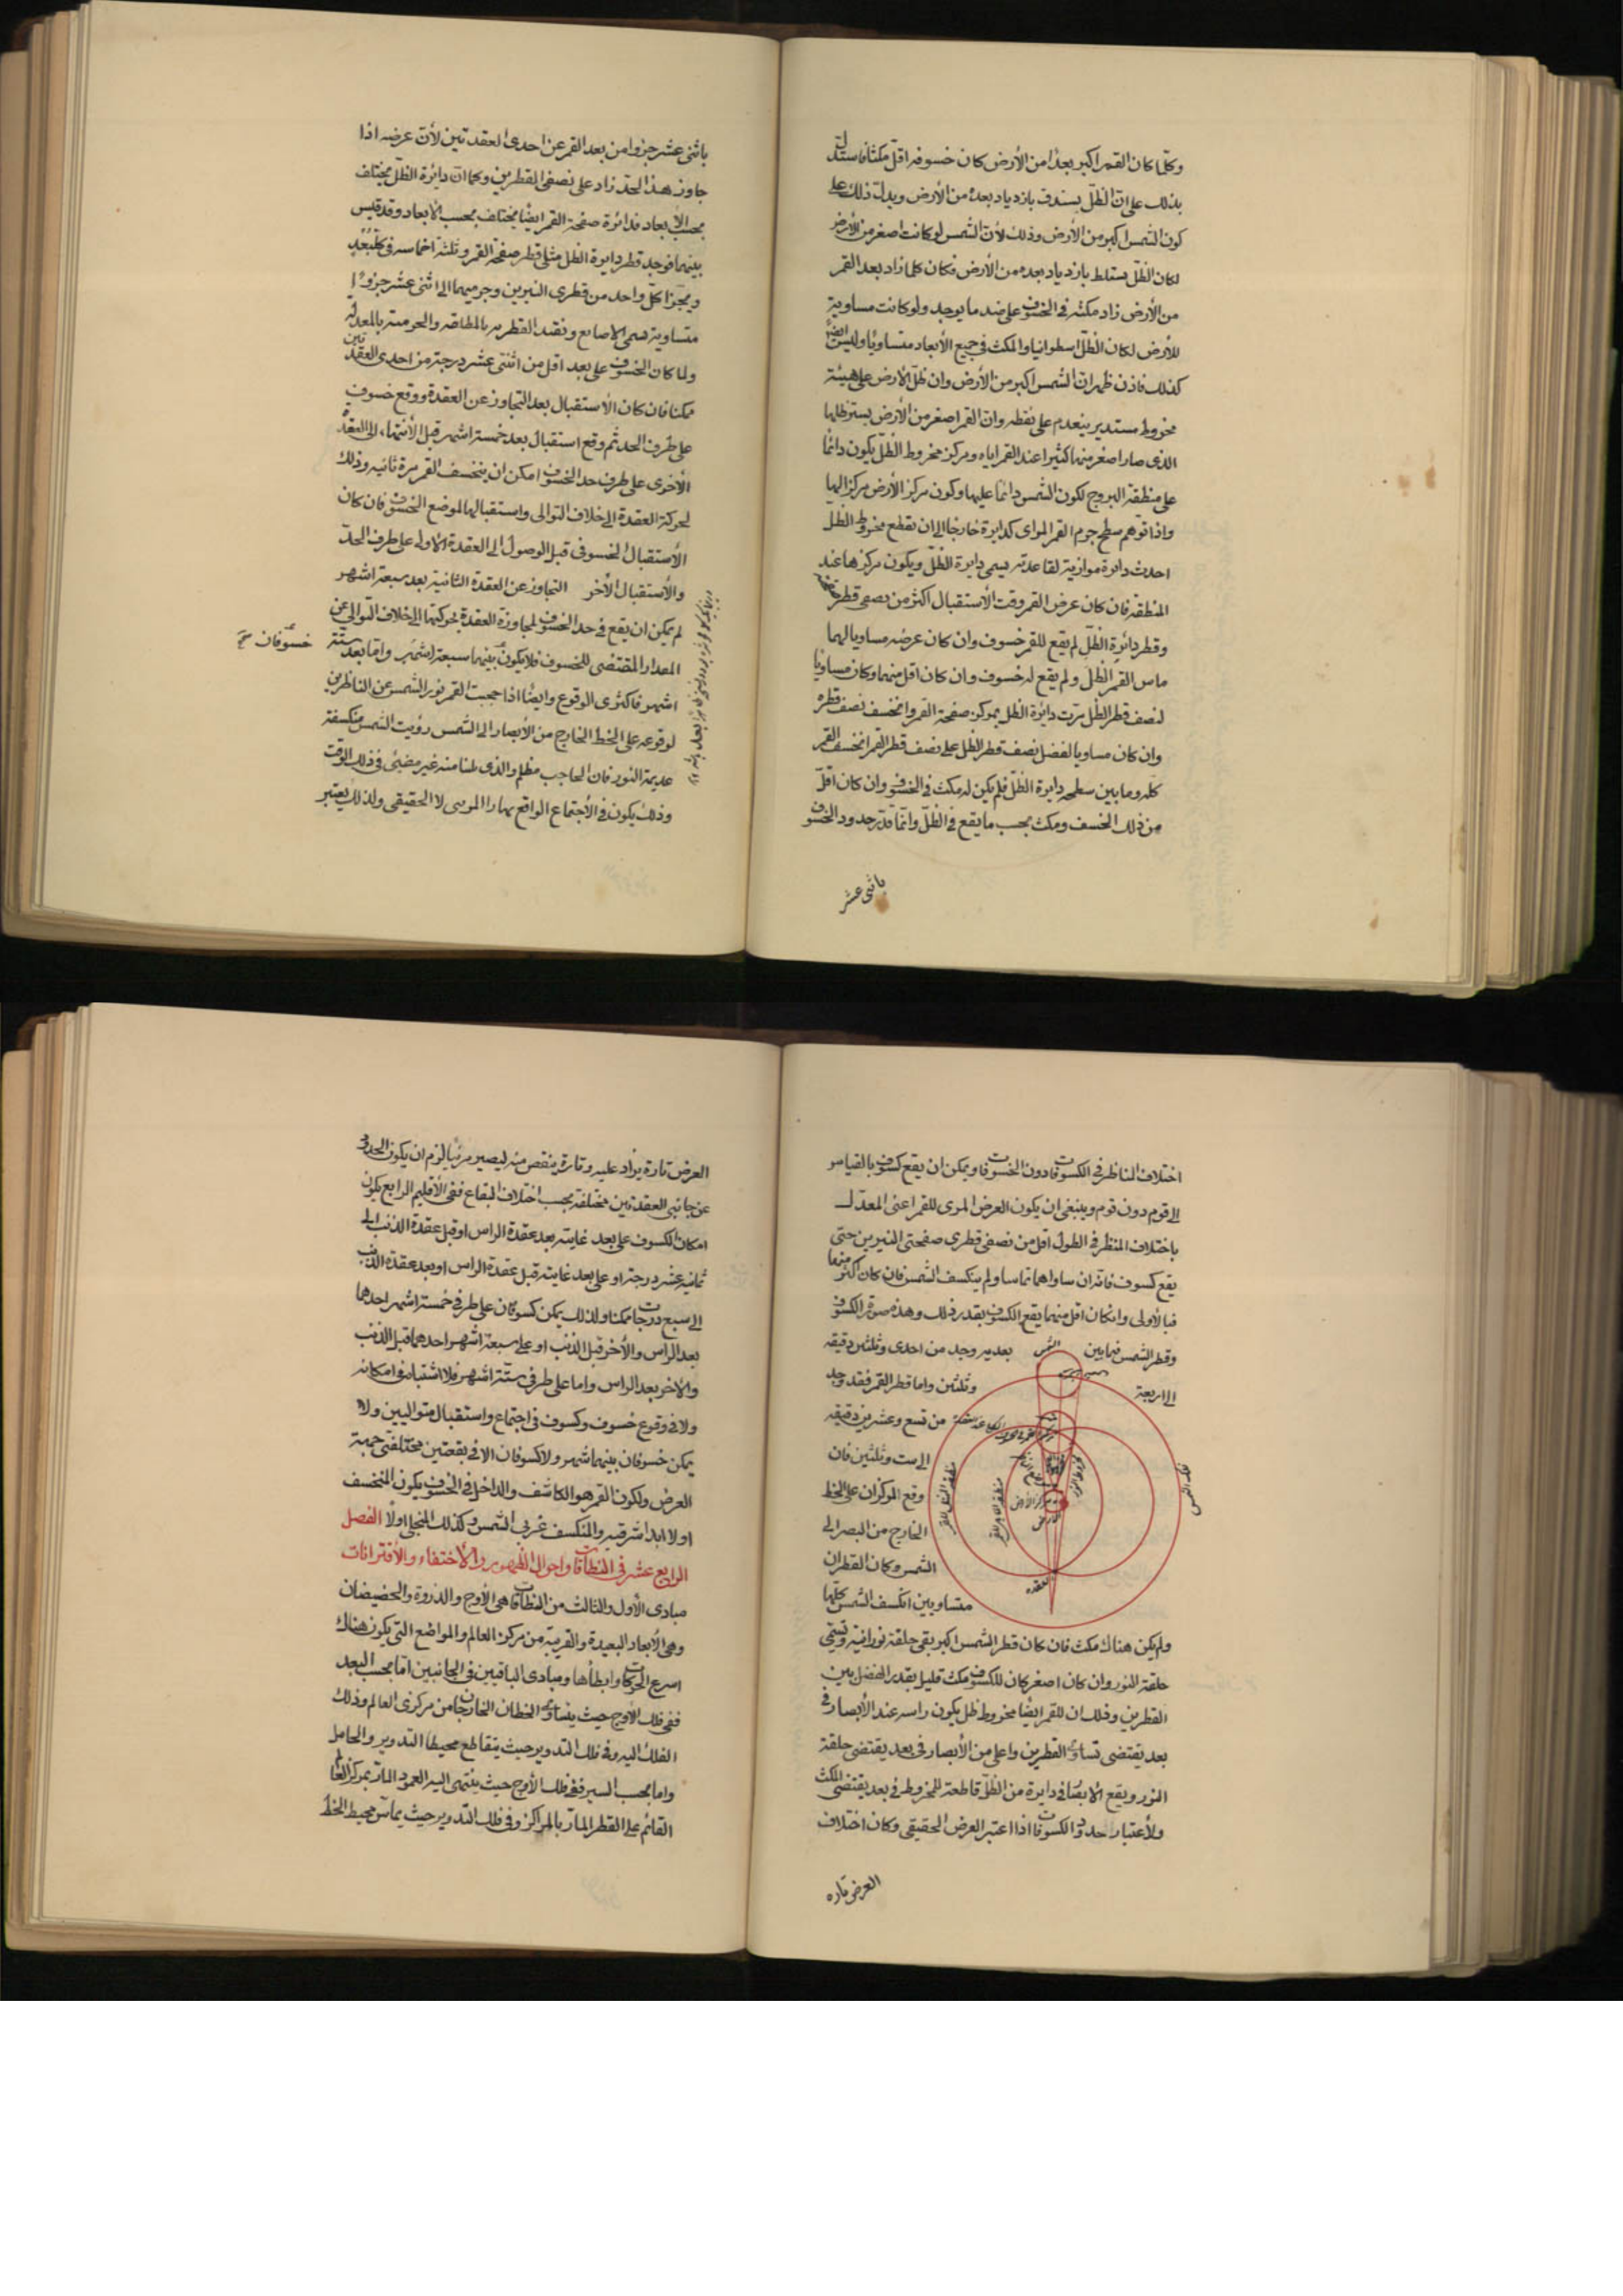 وكلما كان القمر اكبر بعدا من الأرض كان خسوفه اقل مكثا فاستدل
بذلك على ان الظل يستدق بازدياد بعده من الأرض ويدل ذلك على
كون الشمس اكبر من الأرض وذلك لأن الشمس لو كانت اصغر من الأرض
لكان الظل يستلظ بازدياد بعده من الأرض فكان كلما زاد بعد القمر
من الأرض زاد مكثه في الخسوف على ضد ما يوجد ولو كانت مساوية
للأرض لكان الظل اسطوانيا والمكث في جميع الأبعاد متساويا وليس ايضا
كذلك فاذن ظهر ان الشمس اكبر من الأرض وان ظل الأرض على هيئة
مخروط مستدير ينعدم على نقطه وان القمر اصغر من الأرض يستر ظلها
الذى صار اصغر منها كثيرا عند القمر اياه ومركز مخروط الظل يكون دائما
على منطقة البروج لكون الشمس دائما عليها وكون مركز الأرض مركزا لها
واذا توهم سطح جرم القمر المواى كدايرة خارجا الى ان يقطع مخروط الظل
احدث دايرة موازية لقاعدته يسمى دايرة الظل ويكون مركزها عند
المنطقة فان كان عرض القمر وقت الأستقبال اكثر من نصفى قطر
وقطر دائرة الظل لم يقع للقمر خسوف وان كان عرضه مساويا لهما
ماس القمر الظل ولم يقع له خسوف وان كان اقل منهما وكان مساويا
لنصف قطر الظل مرت دايرة الظل بمركز صفحة القمر وانخسف نصف قطره
وان كان مساويا لفضل نصف قطر الظل على نصف قطر القمر انخسف القمر
كله وماس سطحه دايرة الظل فلم يكن له مكث في الخسوف وان كان اقل
من ذلك انخسف ومكث بحسب ما يقع في الظل وانما قدر حدود الخسوف
باثنى عشر
باثنى عشر جزوا من بعد القمر عن احدى العقدتين لأن عرضه اذا
جاوز هذا الحد زاد على نصفى القطرين وكما ان دايرة الظل يختلف
بحسب الأبعاد فدائرة صفحة القمر ايضا يختلف بحسب الأبعاد وقد قيس
بينهما فوجد قطر دايرة الظل مثلى قطر صفحة القمر وثلثة اخماسه في كل بعد
ويجزا كل واحد من قطرى النيرين وجرميهما الى اثنى عشر جزوا
متساوية تسمى الاصابع وتقيد القطريه بالمطلقه والجرمية بالمعدله
ولما كان الخسوف على بعد اقل من اثنتى عشر درجة من احدى العقدتين
ممكنا فان كان الأستقبال بعد التجاوز عن العقدة ووقع خسوف
على طرف الحد ثم وقع استقبال بعد خمسة اشهر قبل الأنتهاء الى العقدة
الأخرى على طرف حد الخسوف امكن ان ينخسف القمر مرة ثانية وذلك
لحركة العقدة الى خلاف التوالى واستقبالها لموضع الخسوف فان كان
الأستقبال الخسوفى قبل الوصول الى العقدة الأولى على طرف الحد
والأستقبال الأخر التجاوز عن العقدة الثانية بعد سبعة اشهر
لم يمكن ان يقع في حد الخسوف لمجاوزة العقدة بحركتها الى خلاف التوالى عن
المعدار المقتضى للخسوف فلا يكون بينهما سبعة اشهر واما بعد ستة
خسوفان صح
اشهر فاكثرى الوقوع وايضا اذا حجبت القمر نور الشمس عن الناظرين
لوقوعه على الخط الخارج من الأبصار الى الشمس رؤيت الشمس منكسفة
عديمة النور فان الحاجب مظلم والذى يلينا منه غير مضيئ في ذلك الوقت
وذلك يكون في الأجتماع الواقع نهارا المرئى لا الحقيقى ولذلك يعتبر
اختلاف المناظر في الكسوفات دون الخسوفات ويمكن ان يقع كسوف بالقياس
الى قوم دون قوم وينبغى ان يكون العرض المرى للقمر اعنى المعدل
باختلاف المنظر في الطول اقل من نصفى قطرى صفحتى النيرين حتى
يقع كسوف فانه ان ساواهما تماسا ولم ينكسف الشمس فان كان اكثر منهما
فبالأولى وان كان اقل منهما يقع الكسوف بقدر ذلك وهذه صورة الكسوف
وقطر الشمس فيما بين بعديه وجد من احدى وثلثين دقيقه
الى اربعة وثلثين واما قطر القمر فقد وجد
من تسع وعشرين دقيقه
الى ست وثلثين فان
وقع المركزان على الخط
الخارج من البصر الى
الشمس وكان القطران
متساويين انكسف الشمس كلها
فلك الشمس
مركز الأرض
العقده
ولم يكن هناك مكث فان كان قطر الشمس اكبر بقى حلقة نورانية وتسمى
حلقة النور وان كان اصغر كان للكسوف مكث قليل بقدر الفضل بين
القطرين وذلك ان للقمر ايضا مخروط ظل يكون راسه عند الأبصار في
بعد يقتضى تساوى القطرين واعلى من الأبصار في بعد يقتضى حلقة
النور ويقع الابصار في دايرة من الظل قاطعة للمخروط في بعد يقتضى المكث
ولأعتبار حدود الكسوفات اذا اعتبر العرض الحقيقى وكان اختلاف
العرض تاره
العرض تارة يزاد عليه وتارة ينقص منه ليصير مرئيا لزم ان يكون الحدود
عن جانبى العقدتين مختلفة بحسب اختلاف البقاع ففى الأقليم الرابع يكون
امكان الكسوف على بعد غايته بعد عقدة الراس او قبل عقدة الذنب الى
ثمانية عشر درجة او على بعد غايته قبل عقدة الراس او بعد عقدة الذنب
الى سبع درجات ممكنا ولذلك يمكن كسوفان على طرفى خمسة اشهر احدهما
بعد الراس والأخر قبل الذنب او على سبعة اشهر احدهما قبل الذنب
والاخر بعد الراس واما على طرفى ستة اشهر فلا اشتباه في امكانه
ولا في وقوع خسوف وكسوف في اجتماع واستقبال متواليين ولا
يمكن خسوفان بينهما شهر ولا كسوفان الا في بقعتين مختلفتى جهة
العرض ولكون القمر هو الكاشف والداخل في الخسوف يكون المنخسف
اولا ابدا شرقيه والمنكسف غربى الشمس وكذلك المنجلى اولا الفصل
الرابع عشر في النطاقات واحوال الظهور والأختفاء والأقترانات
مبادى الأول والثالث من النطاقات هى الأوج والذروة والحضيضان
وهى الأبعاد البعيدة والقريبة من مركز العالم والمواضع التى يكون هناك
اسرع الحركات وابطأها ومبادى الباقيين في الجانبين اما بحسب البعد
ففى فلك الأوج حيث يتساوى الخطان الخارجان من مركزى العالم وذلك
الفلك اليه وفي فلك التدوير حيث يتقاطع محيطا التدوير والحامل
واما بحسب السير ففى فلك الأوج حيث ينتهى اليه العمود المار بمركز العالم
القائم على القطر المار بالمراكز وفي فلك التدوير حيث يماس محيط الخط